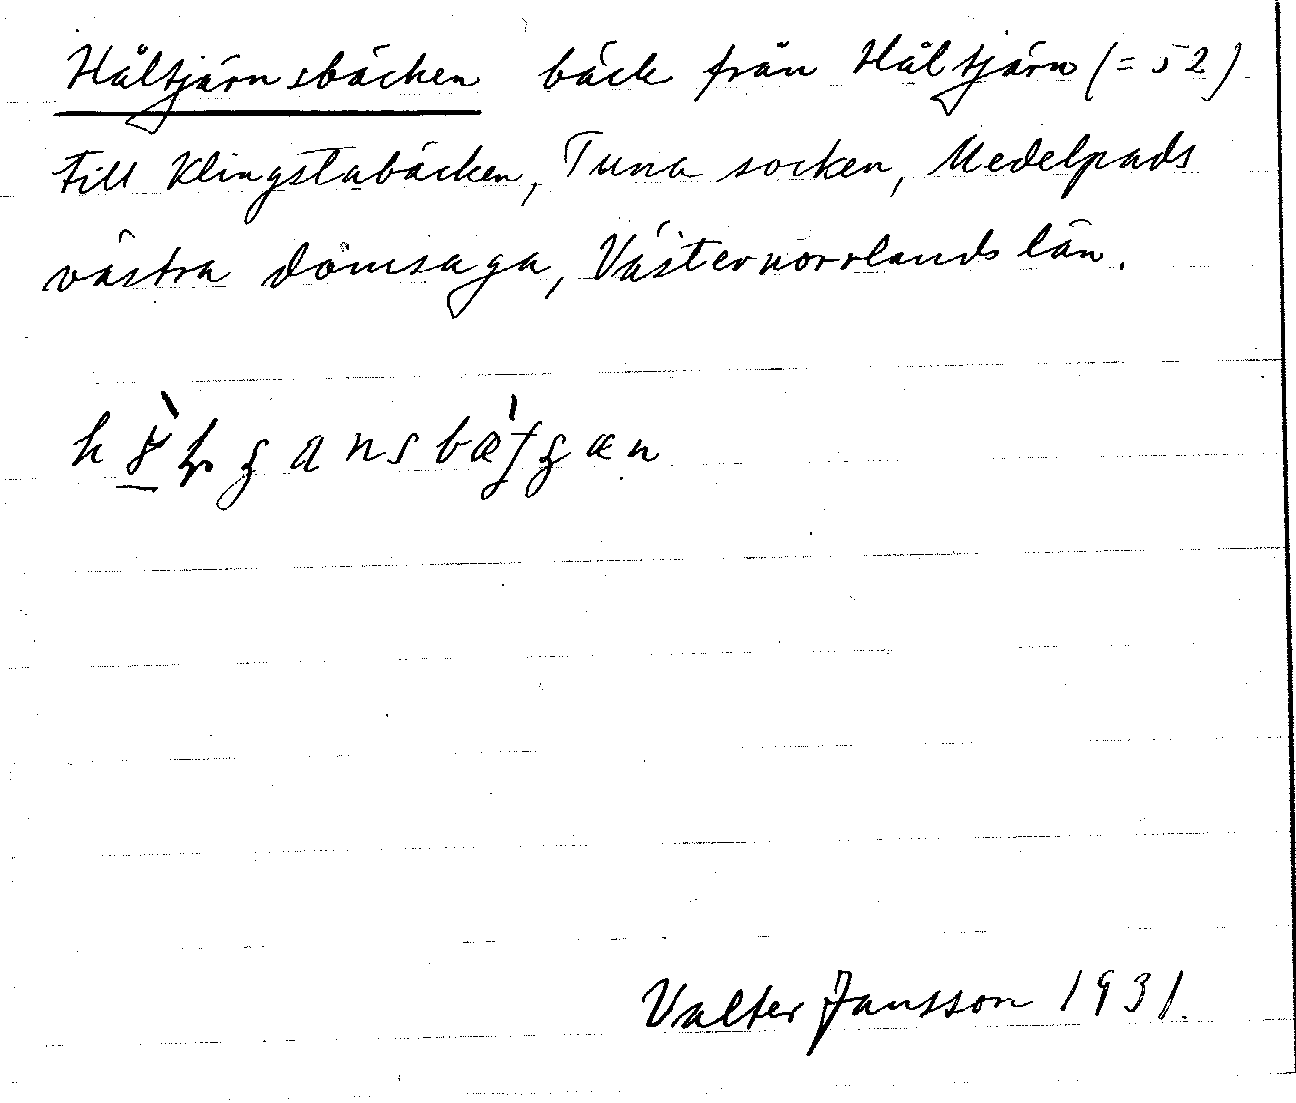 Håltjärnsbäcken bäck från Håltjärn (= 52)
till Klingstabäcken, Tuna socken, Medelpads
västra domsaga, Västernorrlands län.
Valter Jansson 1931.